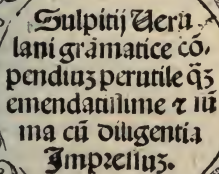 Sulpitij Veru
lani grãmatice cõ-
pendiuȝ perutile q̃ȝ
emendatissime ⁊ sũ
ma cũ diligentia
Impressuȝ.